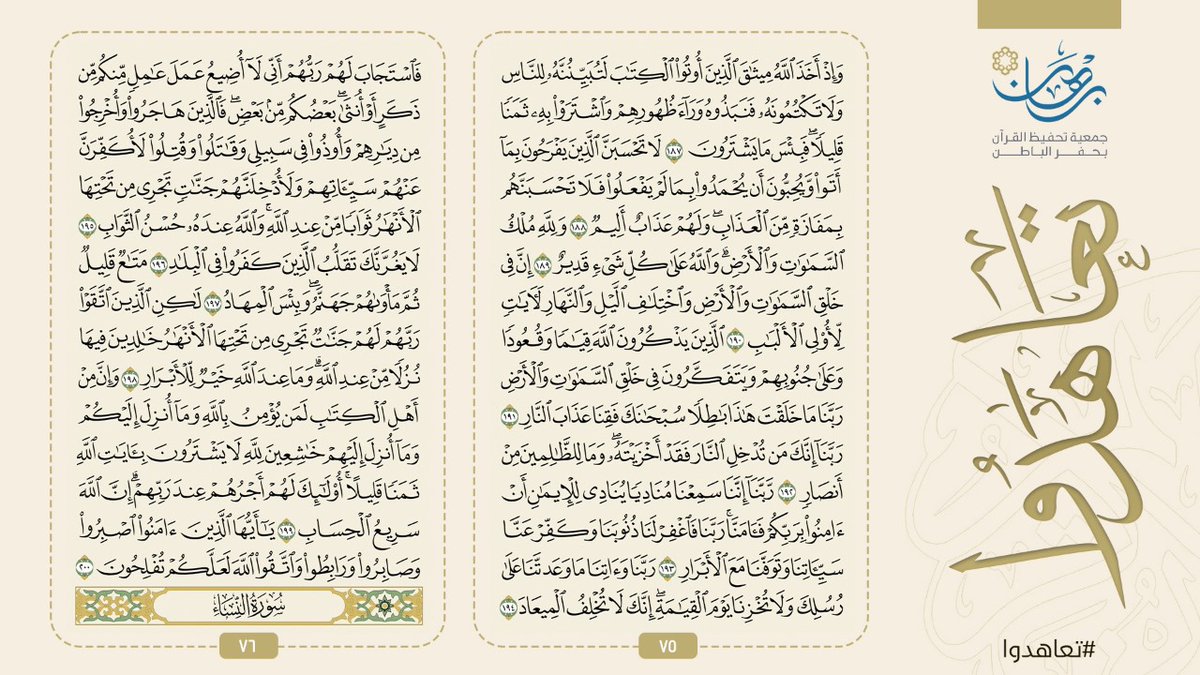 برهان
جمعية تحفيظ القرآن
بحفر الباطن
تعاهدوا
#تعاهدوا
وَإِذْ أَخَذَ ٱللَّهُ مِيثَٰقَ ٱلَّذِينَ أُوتُوا۟ ٱلْكِتَٰبَ لَتُبَيِّنُنَّهُۥ لِلنَّاسِ
وَلَا تَكْتُمُونَهُۥ فَنَبَذُوهُ وَرَآءَ ظُهُورِهِمْ وَٱشْتَرَوْا۟ بِهِۦ ثَمَنًا
قَلِيلًا ۖ فَبِئْسَ مَا يَشْتَرُونَ ١٨٧ لَا تَحْسَبَنَّ ٱلَّذِينَ يَفْرَحُونَ بِمَآ
أَتَوا۟ وَّيُحِبُّونَ أَن يُحْمَدُوا۟ بِمَا لَمْ يَفْعَلُوا۟ فَلَا تَحْسَبَنَّهُم
بِمَفَازَةٍ مِّنَ ٱلْعَذَابِ ۖ وَلَهُمْ عَذَابٌ أَلِيمٌ ١٨٨ وَلِلَّهِ مُلْكُ
ٱلسَّمَٰوَٰتِ وَٱلْأَرْضِ ۗ وَٱللَّهُ عَلَىٰ كُلِّ شَىْءٍ قَدِيرٌ ١٨٩ إِنَّ فِى
خَلْقِ ٱلسَّمَٰوَٰتِ وَٱلْأَرْضِ وَٱخْتِلَٰفِ ٱلَّيْلِ وَٱلنَّهَارِ لَـَٔايَٰتٍ
لِّأُو۟لِى ٱلْأَلْبَٰبِ ١٩٠ ٱلَّذِينَ يَذْكُرُونَ ٱللَّهَ قِيَٰمًا وَقُعُودًا
وَعَلَىٰ جُنُوبِهِمْ وَيَتَفَكَّرُونَ فِى خَلْقِ ٱلسَّمَٰوَٰتِ وَٱلْأَرْضِ
رَبَّنَا مَا خَلَقْتَ هَٰذَا بَٰطِلًا سُبْحَٰنَكَ فَقِنَا عَذَابَ ٱلنَّارِ ١٩١
رَبَّنَآ إِنَّكَ مَن تُدْخِلِ ٱلنَّارَ فَقَدْ أَخْزَيْتَهُۥ ۖ وَمَا لِلظَّٰلِمِينَ مِنْ
أَنصَارٍ ١٩٢ رَّبَّنَآ إِنَّنَا سَمِعْنَا مُنَادِيًا يُنَادِى لِلْإِيمَٰنِ أَنْ
ءَامِنُوا۟ بِرَبِّكُمْ فَـَٔامَنَّا ۚ رَبَّنَا فَٱغْفِرْ لَنَا ذُنُوبَنَا وَكَفِّرْ عَنَّا
سَيِّـَٔاتِنَا وَتَوَفَّنَا مَعَ ٱلْأَبْرَارِ ١٩٣ رَبَّنَا وَءَاتِنَا مَا وَعَدتَّنَا عَلَىٰ
رُسُلِكَ وَلَا تُخْزِنَا يَوْمَ ٱلْقِيَٰمَةِ ۗ إِنَّكَ لَا تُخْلِفُ ٱلْمِيعَادَ ١٩٤
٧٥
فَٱسْتَجَابَ لَهُمْ رَبُّهُمْ أَنِّى لَآ أُضِيعُ عَمَلَ عَٰمِلٍ مِّنكُم مِّن
ذَكَرٍ أَوْ أُنثَىٰ ۖ بَعْضُكُم مِّنۢ بَعْضٍ ۖ فَٱلَّذِينَ هَاجَرُوا۟ وَأُخْرِجُوا۟
مِن دِيَٰرِهِمْ وَأُوذُوا۟ فِى سَبِيلِى وَقَٰتَلُوا۟ وَقُتِلُوا۟ لَأُكَفِّرَنَّ
عَنْهُمْ سَيِّـَٔاتِهِمْ وَلَأُدْخِلَنَّهُمْ جَنَّٰتٍ تَجْرِى مِن تَحْتِهَا
ٱلْأَنْهَٰرُ ثَوَابًا مِّنْ عِندِ ٱللَّهِ ۗ وَٱللَّهُ عِندَهُۥ حُسْنُ ٱلثَّوَابِ ١٩٥
لَا يَغُرَّنَّكَ تَقَلُّبُ ٱلَّذِينَ كَفَرُوا۟ فِى ٱلْبِلَٰدِ ١٩٦ مَتَٰعٌ قَلِيلٌ
ثُمَّ مَأْوَىٰهُمْ جَهَنَّمُ ۚ وَبِئْسَ ٱلْمِهَادُ ١٩٧ لَٰكِنِ ٱلَّذِينَ ٱتَّقَوْا۟
رَبَّهُمْ لَهُمْ جَنَّٰتٌ تَجْرِى مِن تَحْتِهَا ٱلْأَنْهَٰرُ خَٰلِدِينَ فِيهَا
نُزُلًا مِّنْ عِندِ ٱللَّهِ ۗ وَمَا عِندَ ٱللَّهِ خَيْرٌ لِّلْأَبْرَارِ ١٩٨ وَإِنَّ مِنْ
أَهْلِ ٱلْكِتَٰبِ لَمَن يُؤْمِنُ بِٱللَّهِ وَمَآ أُنزِلَ إِلَيْكُمْ
وَمَآ أُنزِلَ إِلَيْهِمْ خَٰشِعِينَ لِلَّهِ لَا يَشْتَرُونَ بِـَٔايَٰتِ ٱللَّهِ
ثَمَنًا قَلِيلًا ۗ أُو۟لَٰٓئِكَ لَهُمْ أَجْرُهُمْ عِندَ رَبِّهِمْ ۗ إِنَّ ٱللَّهَ
سَرِيعُ ٱلْحِسَابِ ١٩٩ يَٰٓأَيُّهَا ٱلَّذِينَ ءَامَنُوا۟ ٱصْبِرُوا۟
وَصَابِرُوا۟ وَرَابِطُوا۟ وَٱتَّقُوا۟ ٱللَّهَ لَعَلَّكُمْ تُفْلِحُونَ ٢٠٠
سُورَةُ النِّسَاءِ
٧٦